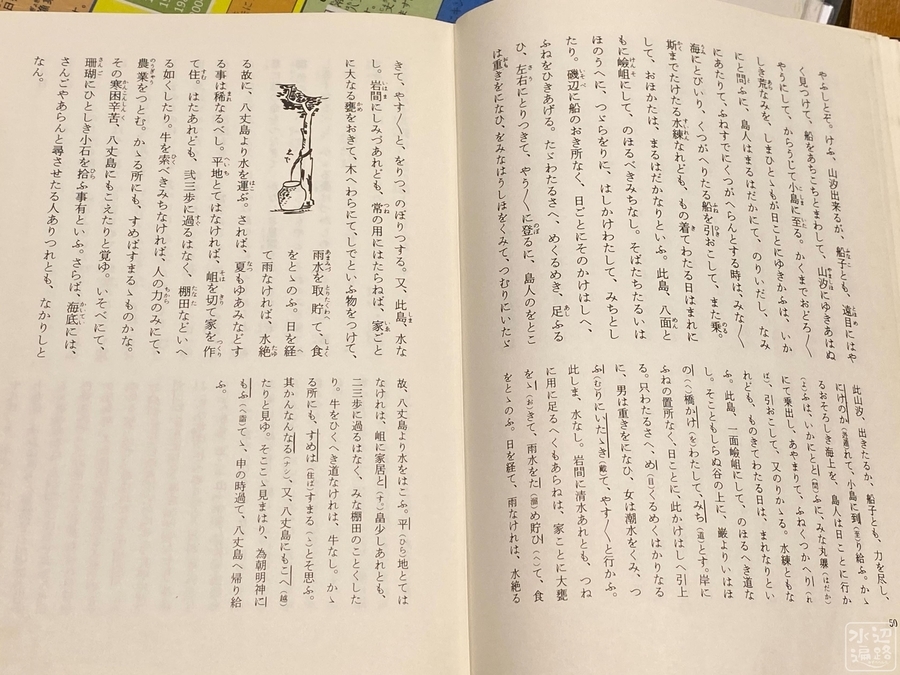 やぶしとぞ。けふ、山汐出来るが、船子とも、遠目にはや
く見つけて、船をあちこちとまわして、山汐にゆきあはぬ
やうにして、からうじて小島に至る。かくまでおどろ〳〵
しき荒なみを、しまひとゝもが日ことにゆきかふは、いか
にと問ふに、島人はまるはだかにて、のりいだし、なみ
にあたりて、ふねすでにくつがへらんとする時は、みな〳〵
海にとびいり、くつがへりたる船を引おこして、また乗。
斯までたけたる水練なれども、もの着てわたる日はまれに
して、おほかたは、まるはだかなりといふ。此島、八面と
もに嶮岨にして、のぼるべきみちなし。そばたちたるいは
ほのうへに、つゞらをりに、はしかけわたして、みちとし
たり。磯辺に船のおき所なく、日ごとにそのかけはしへ、
ふねをひきあげる。たゞわたるさへ、めくるめき、足ふる
ひ、左右にとりつきて、やう〳〵に登るに、島人のをとこ
は重きをになひ、をみなはうしほをくみて、つむりにいたゞ
此山汐、出きたるか、船子とも、力を尽し、
にけのか(逃遁)れて、小島に到(至)り給ふ。かゝ
るおそろしき海上を、島人は日ことに行か
(よ)ふは、いかにとと(問)ふに、みな丸裸(はだか)
にて乗出し、あやまりて、ふねくつかへり(れ
ば)、引おこして、又のりかゝる。水練ともな
れども、ものきてわたる日は、まれなりとい
ふ。此島、一面嶮岨にして、のほるへき道な
し。そこともしらぬ谷の上に、巌よりいはほ
の(へ)橋かけ(を)わたして、みち(道)とす。岸に
ふねの置所なく、日ことに、此かけはしへ引上
る。只わたるさへ、め(目)くるめくはかりなる
に、男は重きをになひ、女は潮水をくみ、つ
ふ(む)りにいたゝき(戴)て、やす〳〵と行かふ。
此しま、水なし。岩間に清水あれとも、つね
に用に足るへくもあらねは、家ことに大甕
をゝ(お)きて、雨水をた(溜)め貯ひ(へ)て、食
をとゝのふ。日を経て、雨なけれは、水絶る
50
きて、やす〳〵と、をりつ、のぼりつする。又、此島、水な
し。岩間にしみづあれども、常の用にはたらねば、家ごと
に大なる甕をおきて、木へわらにて、しでといふ物をつけて、
雨水を取貯て、食
をとゝのふ。日を経
て雨なければ、水絶
る故に、八丈島より水を運ぶ。されば、夏もゆあみなどす
る事は稀なるべし。平地とてはなければ、岨を切て家を作
て住。はたあれども、弐三歩に過るはなく、棚田などいへ
る如くしたり。牛を索べきみちなければ、人の力のみにて、
農業をつとむ。かゝる所にも、すめばすまるゝものかな。
その寒困辛苦、八丈島にもこえたりと覚ゆ。いそべにて、
珊瑚にひとしき小石を拾ふ事有といふ。さらば、海底には、
さんごやあらんと尋させたる人ありつれとも、なかりしと
なん。
故、八丈島より水をはこふ。平(ひら)地とては
なけれは、岨に家居と(す)畠少しあれとも、
二三歩に過るはなく、みな棚田のことくした
り。牛をひくへき道なけれは、牛なし。かゝ
る所にも、すめは(住ば)すまる(ゝ)とそ思ふ。
其かんなんなる(ナシ)、又、八丈島にもこへ(越)
たりと見ゆ。そここゝ見まはり、為朝明神に
もふ(へ詣)てゝ、申の時過て、八丈島へ帰り給
ふ。
水辺遍路